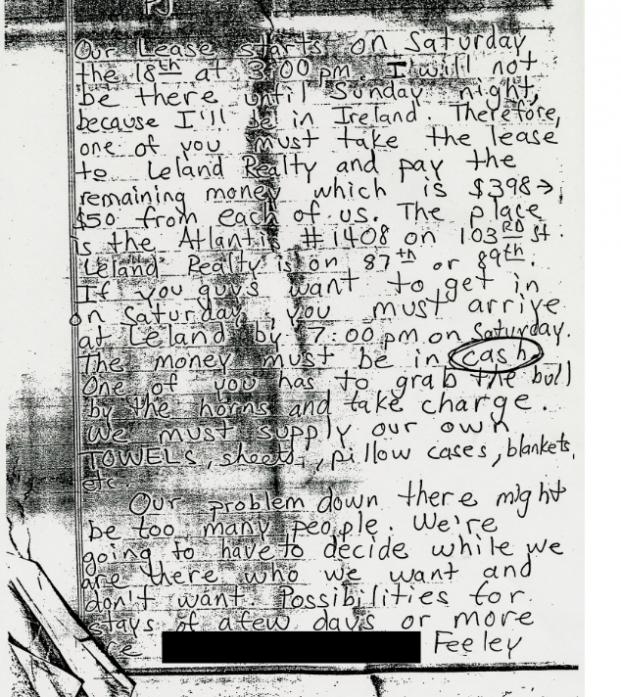 PJ
Our Lease starts on Saturday
the 18th at 3:00 pm. I will not
be there until Sunday night,
because I'll be in Ireland. Therefore,
one of you must take the lease
to Leland Realty and pay the
remaining money which is $398→
$50 from each of us. The place
is the Atlantis #1408 on 103RD st.
Leland Realty is on 87th or 89th.
If you guys want to get in
on Saturday, you must arrive
at Leland by 7:00 pm on Saturday.
The money must be in cash
One of you has to grab the bull
by the horns and take charge.
We must supply our own
TOWELS, sheets, pillow cases, blankets,
etc.
Our problem down there might
be too many people. We're
going to have to decide while we
are there who we want and
don't want. Possibilities for
stays of a few days or more
are Feeley